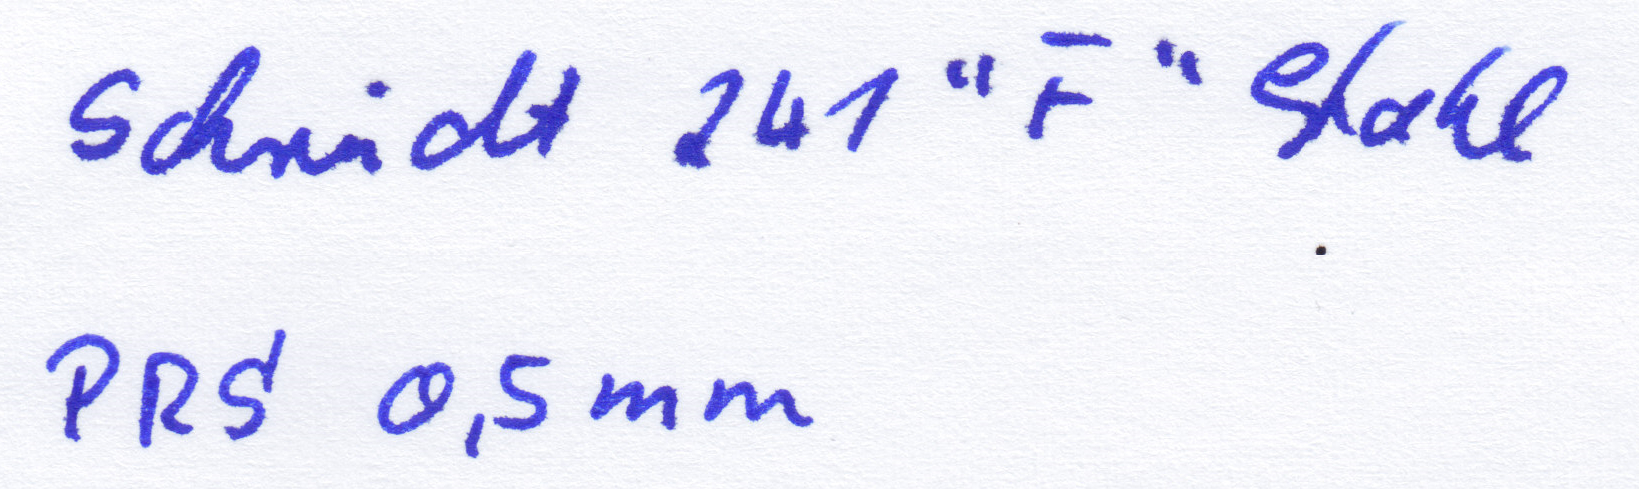 Schmidt 241 "F" Stahl
PRS 0,5mm